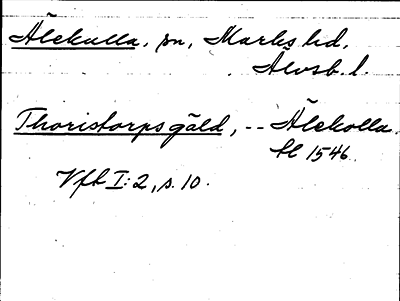 Älekulla, sn, Marks hd,
Älvsb. l.
Thoristorps gäld, -- Älekolla
hl 1546.
Vfb I:2, s. 10.